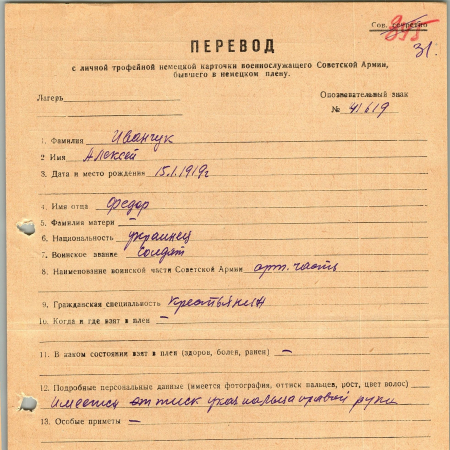 Сов. секретно
31.
ПЕРЕВОД
с личной трофейной немецкой карточки военнослужащего Советской Армии,
бывшего в немецком плену.
Лагерь
Опознавательный знак
№ 41619
1. Фамилия Иванчук
2 Имя Алексей
3. Дата и место рождения 15.1.1919г
4. Имя отца Федор
5. Фамилия матери —
6. Национальность украинец
7. Воинское звание солдат
8. Наименование воинской части Советской Армии арт. часть
9. Гражданская специальность крестьянин
10. Когда и где взят в плен —
11. В каком состоянии взят в плен (здоров, болен, ранен) —
12. Подробные персональные данные (имеется фотография, оттиск пальцев, рост, цвет волос)
Имеется оттиск указ пальца правой руки
13. Особые приметы —